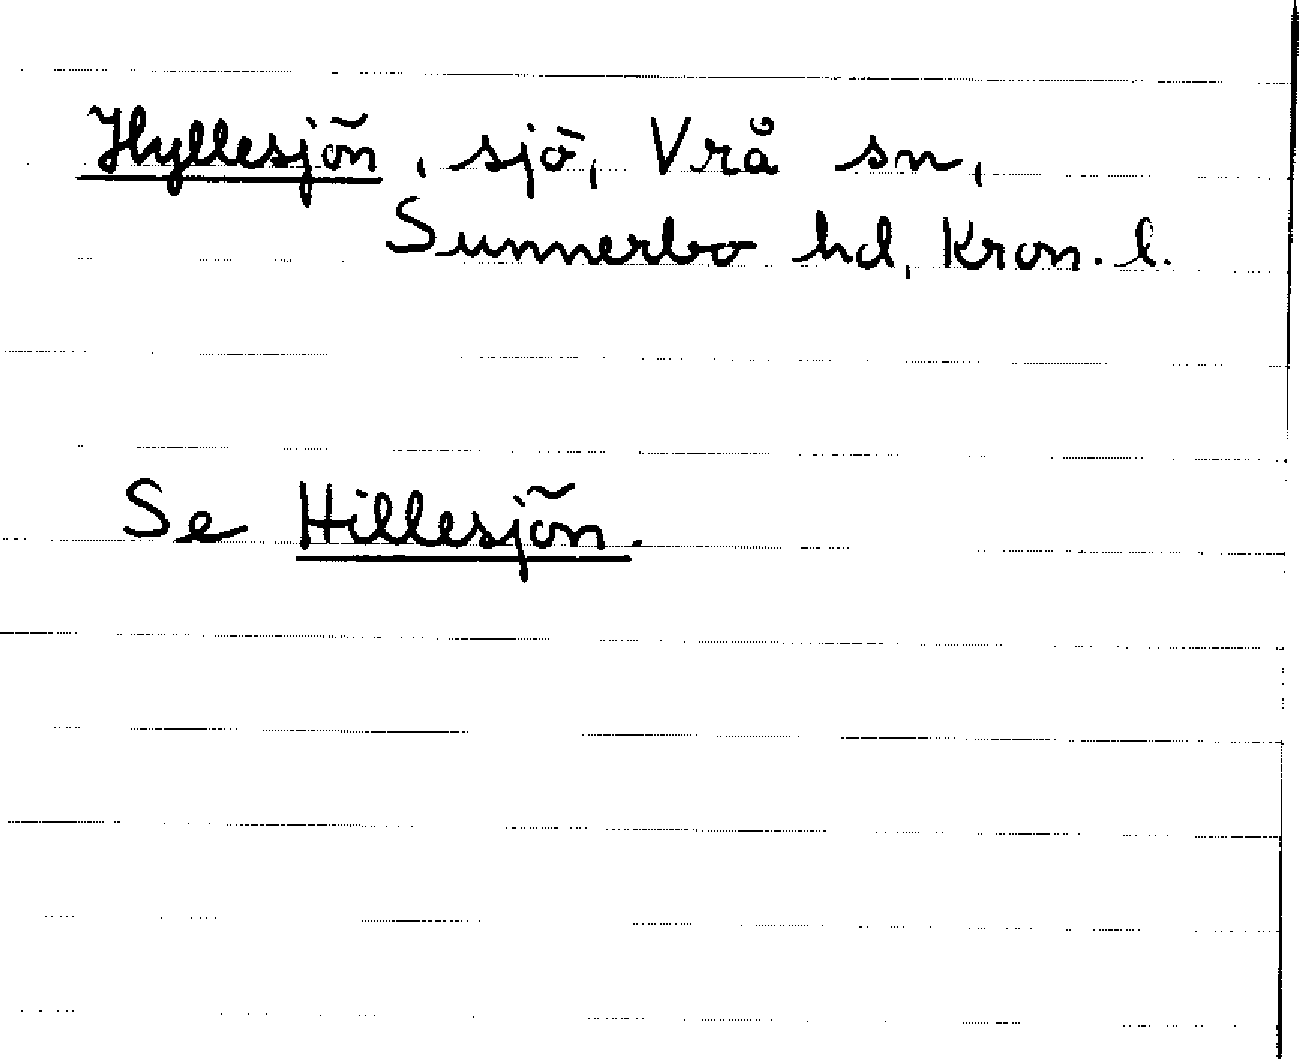 Hyllesjön, sjö, Vrå sn,
Sunnerbo hd, Kron. l.
Se Hillesjön.